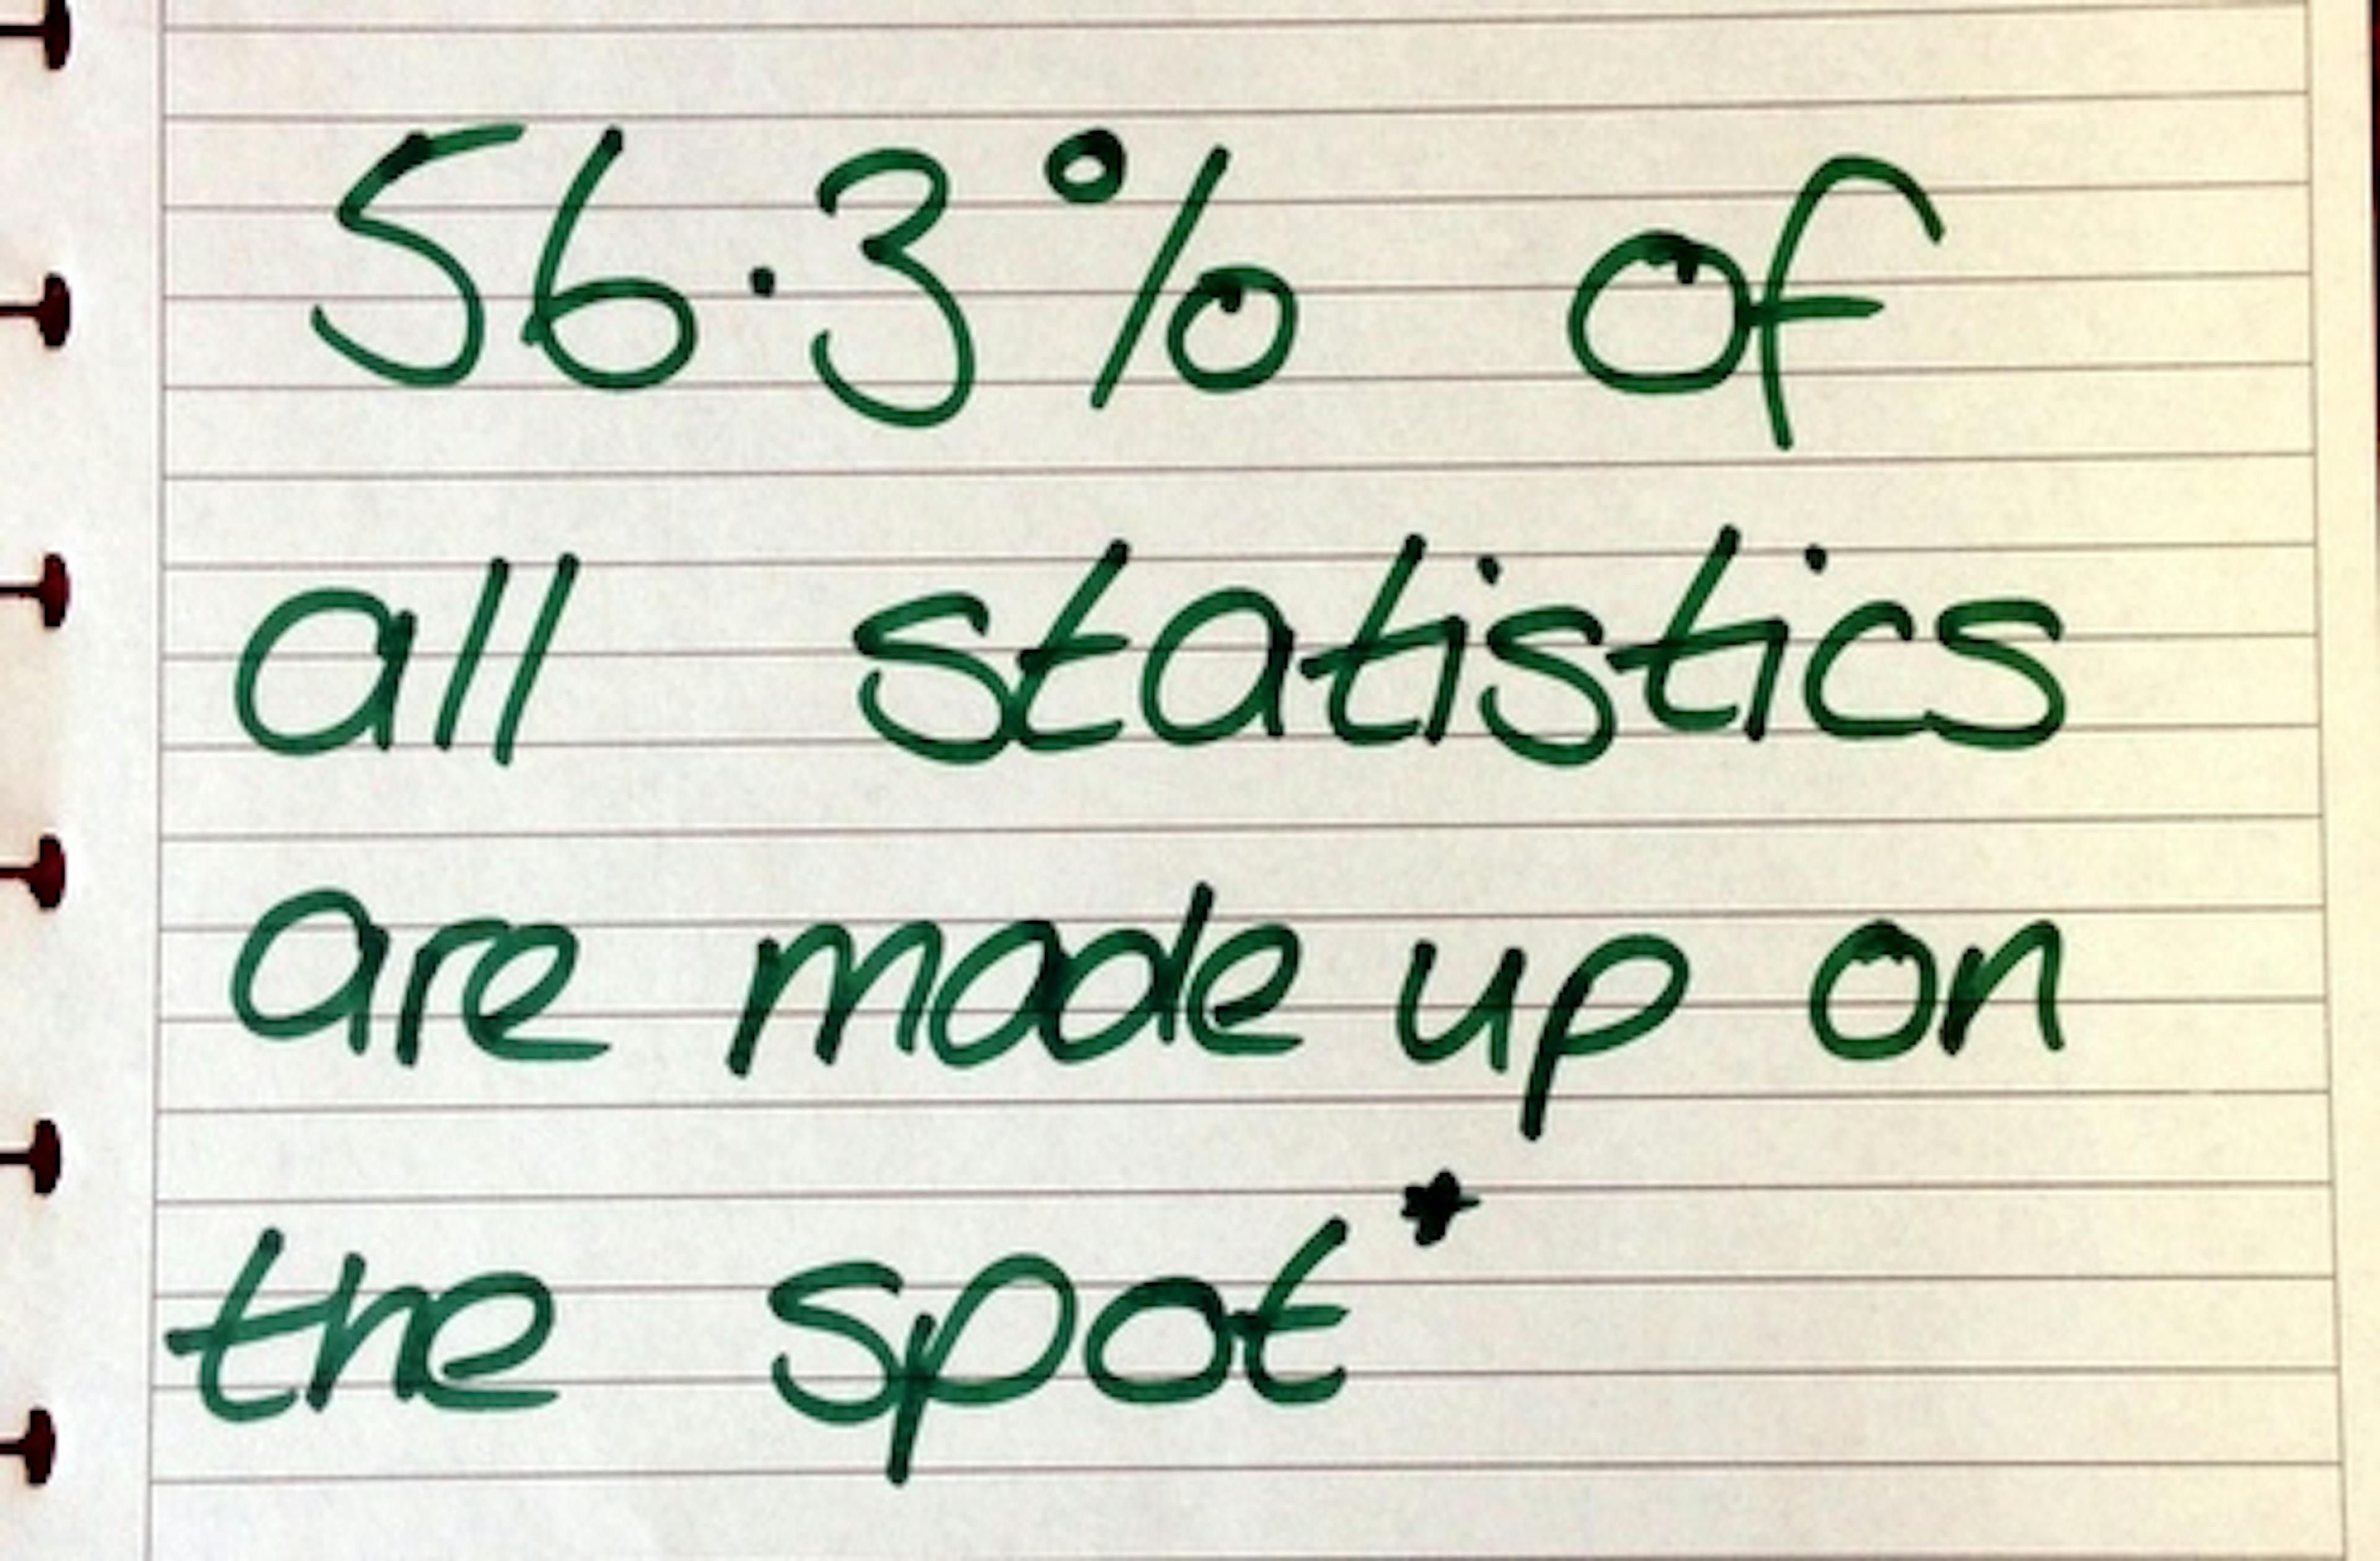 56.3% of
all statistics
are made up on
the spot*